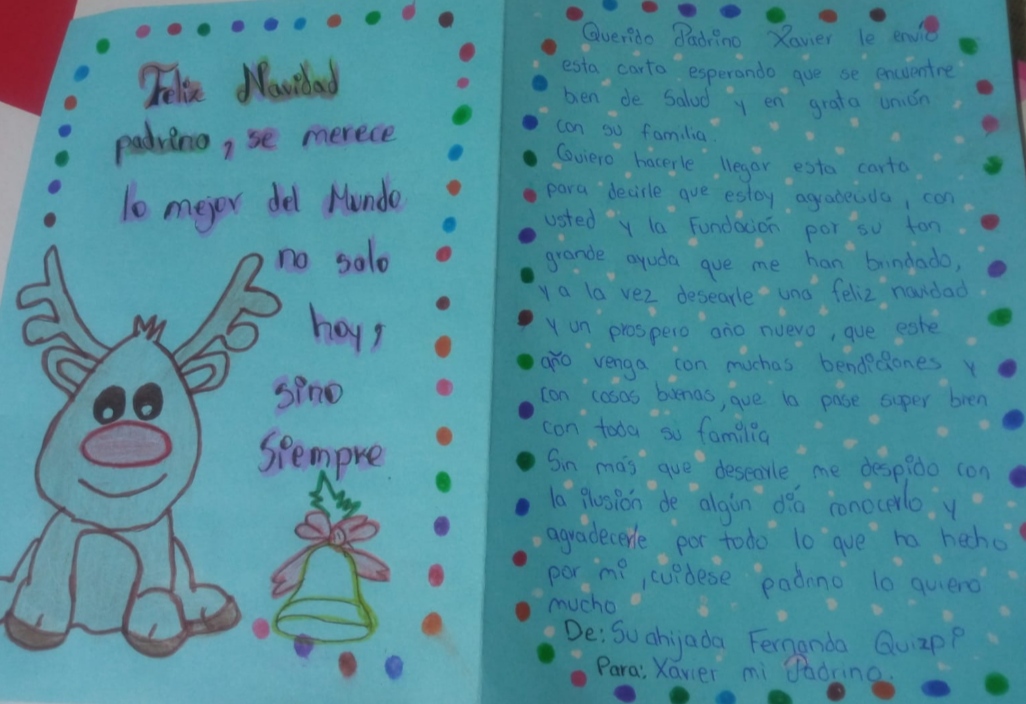 Feliz Navidad
padrino, se merece
lo mejor del Mundo
no solo
hoy,
sino
siempre
Querido Padrino Xavier le envio
esta carta esperando que se encuentre
bien de Salud y en grata unión
con su familia.
Quiero hacerle llegar esta carta
para decirle que estoy agradecida, con
usted y la Fundación por su tan
grande ayuda que me han brindado,
y a la vez desearle una feliz navidad
y un prospero año nuevo, que este
año venga con muchas bendiciones y
con cosas buenas, que la pase super bien
con toda su familia
Sin más que desearle me despido con
la ilusión de algún día conocerlo y
agradecerle por todo lo que ha hecho
por mi, cuídese padrino lo quiero
mucho
De: Su ahijada Fernanda Quizpi
Para: Xavier mi Padrino.